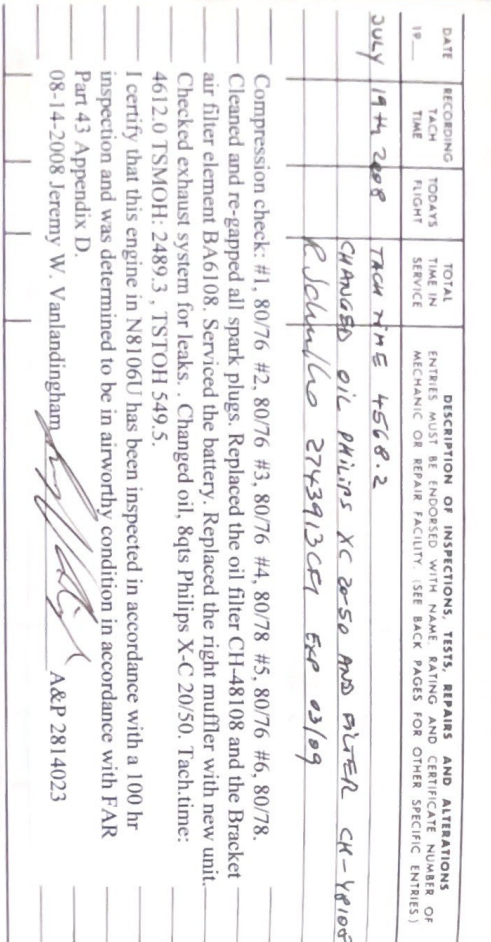 DATE
19__
RECORDING
TACH
TIME
TODAYS
FLIGHT
TOTAL
TIME IN
SERVICE
DESCRIPTION OF INSPECTIONS, TESTS, REPAIRS AND ALTERATIONS
ENTRIES MUST BE ENDORSED WITH NAME, RATING AND CERTIFICATE NUMBER OF
MECHANIC OR REPAIR FACILITY. (SEE BACK PAGES FOR OTHER SPECIFIC ENTRIES.)
JULY 19th 2008 TACH TIME 4568.2
CHANGED OIL PHILIPS XC 20-50 AND FILTER CH-48108
2743913CFI EXP 03/09
Compression check: #1, 80/76 #2, 80/76 #3, 80/76 #4, 80/78 #5, 80/76 #6, 80/78.
Cleaned and re-gapped all spark plugs. Replaced the oil filter CH-48108 and the Bracket
air filter element BA6108. Serviced the battery. Replaced the right muffler with new unit.
Checked exhaust system for leaks. . Changed oil, 8qts Philips X-C 20/50. Tach.time:
4612.0 TSMOH: 2489.3 , TSTOH 549.5.
I certify that this engine in N8106U has been inspected in accordance with a 100 hr
inspection and was determined to be in airworthy condition in accordance with FAR
Part 43 Appendix D.
08-14-2008 Jeremy W. Vanlandingham A&P 2814023